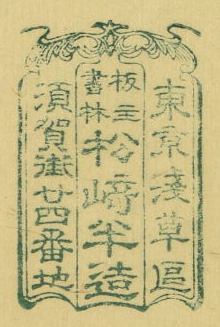 東京淺草區
板主
書林
松﨑半造
須賀街廿四番地